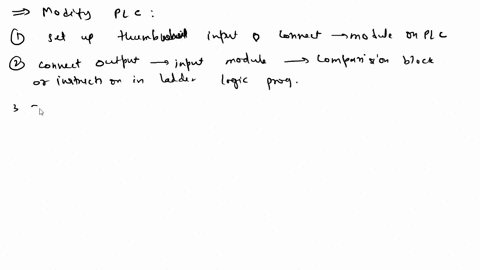 ⇒ Modify PLC :
① set up input & connect → module on PLC
② connect output → input module → comparision block
or instruction in ladder logic prog.
3